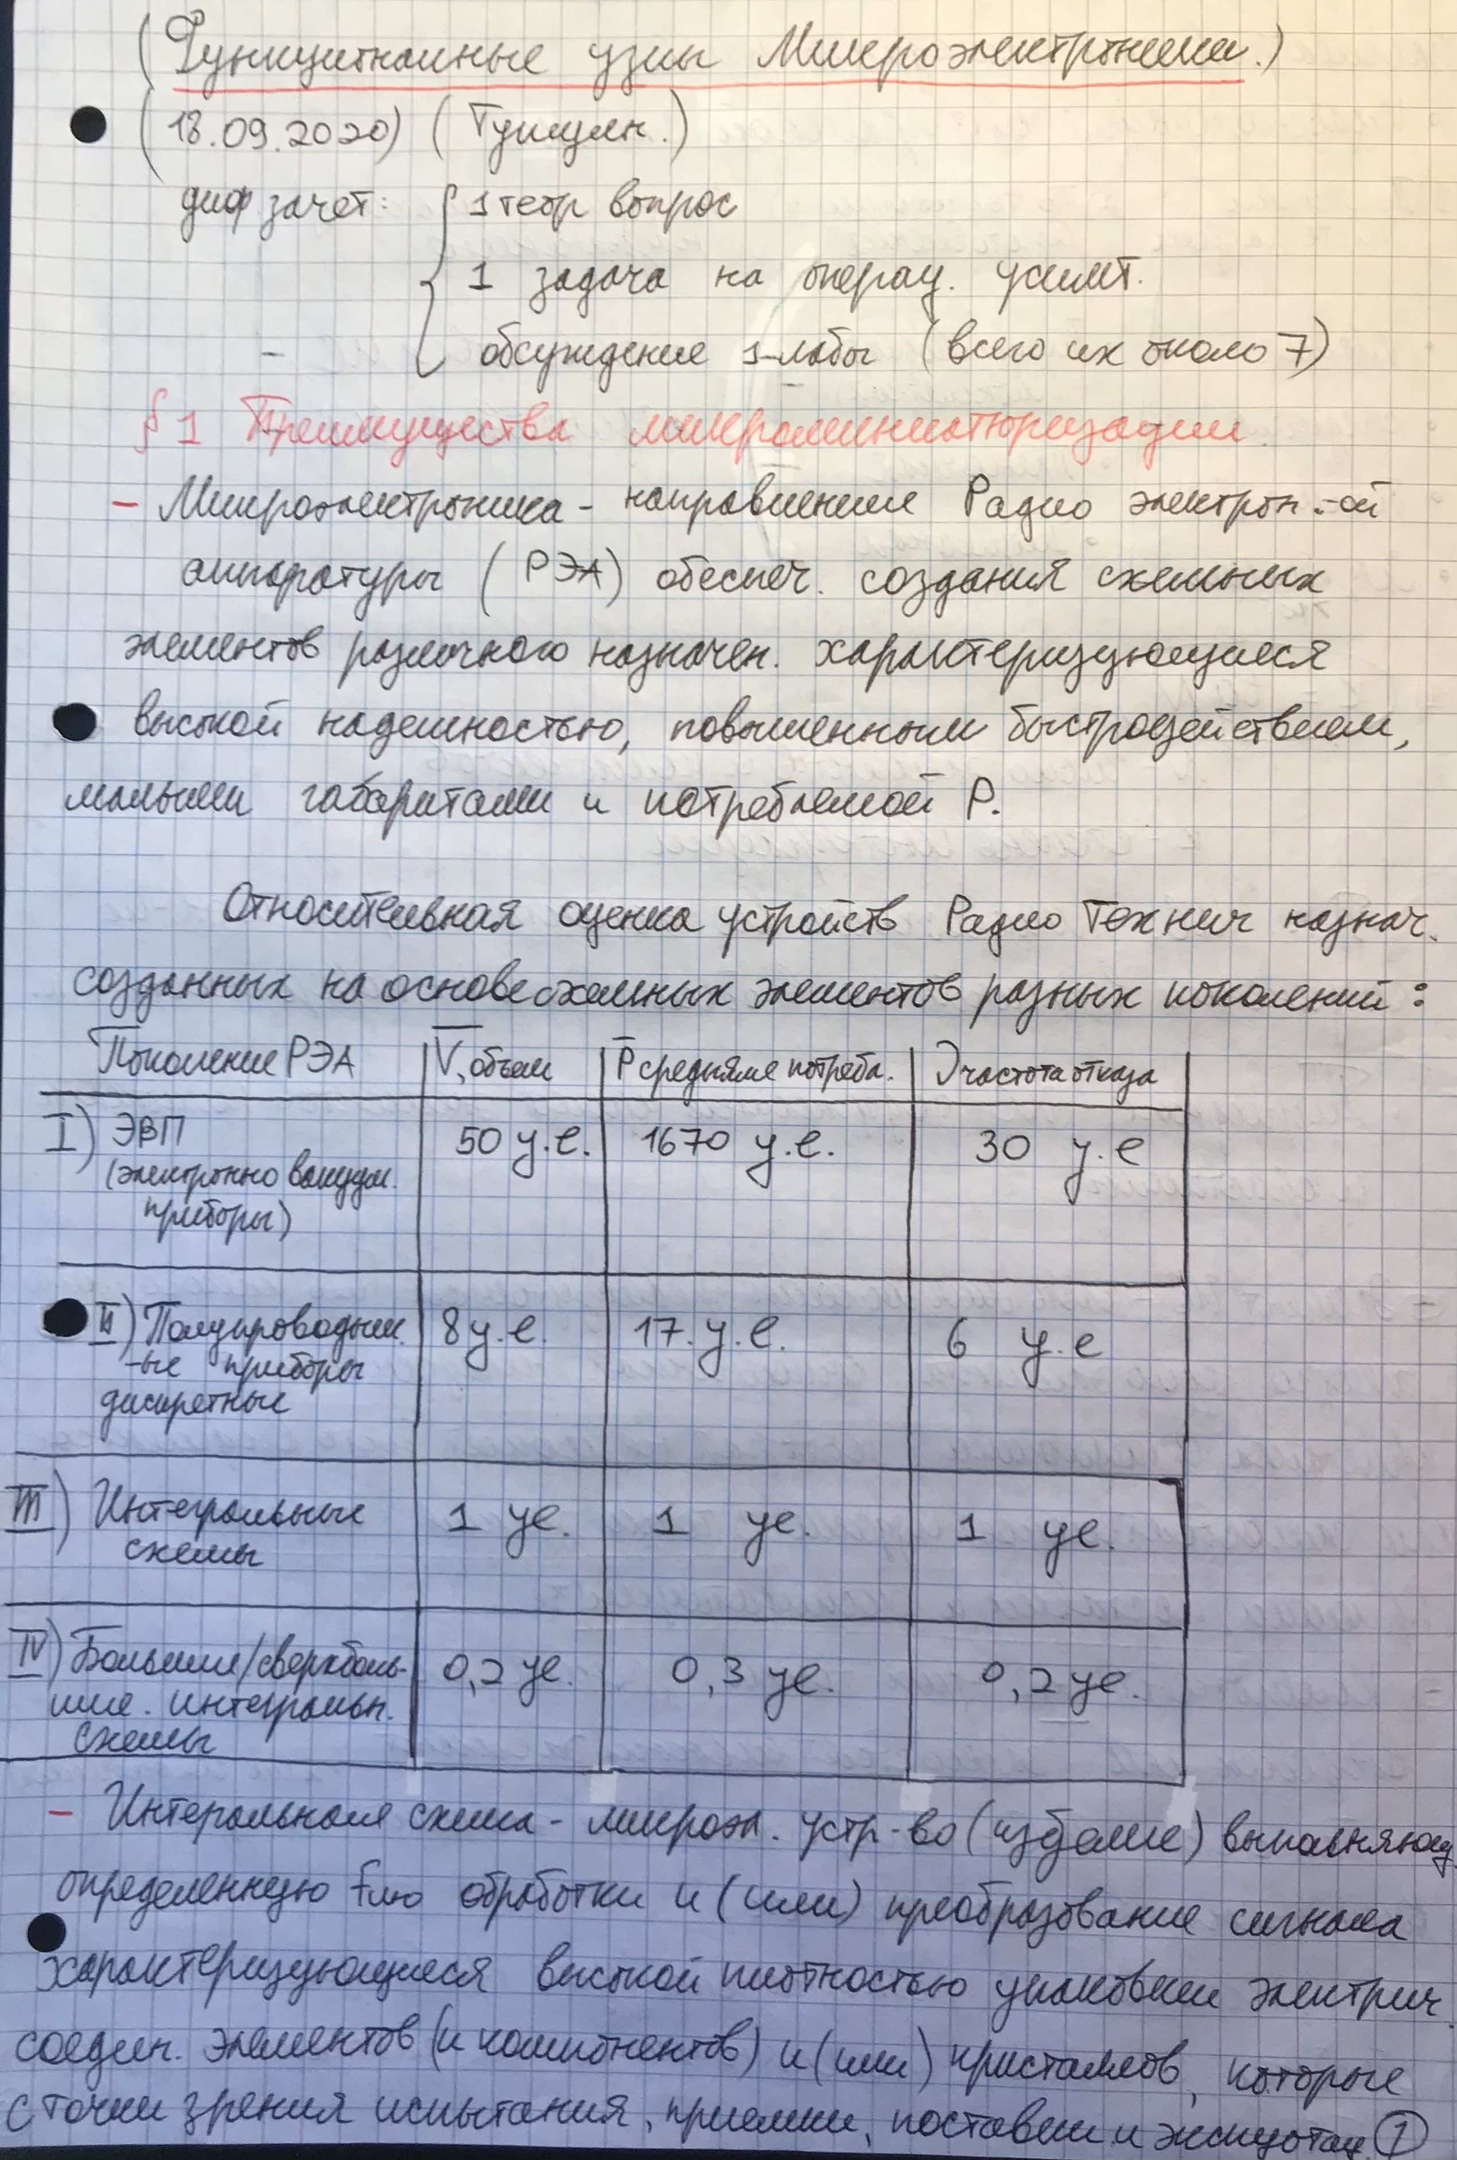 (Функциональные узлы Микроэлектроники.)
(18.09.2020) (
диф зачет: 1 теор вопрос
1 задача на операц. усилит.
- обсуждение 1-лабы (всего их около 7)
§1 Преимущества микроминиатюризации.
- Микроэлектроника - направление Радио электрон.-ой
аппаратуры (РЭА) обеспеч. создания схемных
элементов различного назначен. характеризующиеся
высокой надежностью, повышенным быстродействием,
малыми габаритами и потребляемой P.
Относительная оценка устройств Радио Технич назнач.
созданных на основе схемных элементов разных поколений:
Поколение РЭА | V, объем | P средняяе потребл. | λ частота отказа
I) ЭВП | 50 у.е. | 1670 у.е. | 30 у.е
(электронно вакуум.
приборы)
II) Полупроводник. | 8 у.е. | 17. у.е. | 6 у.е
-ые приборы
дискретные
III) Интегральные | 1 уе. | 1 уе. | 1 уе.
схемы
IV) Большие/сверхболь- | 0,2 уе. | 0,3 уе. | 0,2 уе.
шие. интегральн.
схемы
- Интегральная схема - микроэл. устр-во (изделие) выполняющ.
определенную f-ию обработки и (или) преобразование сигнала
характеризующиеся высокой плотностью упаковки электрич.
соедин. элементов (и компонентов) и (или) кристаллов, которые
с точки зрения испытания, приемки, поставки и эксплуотац. 1